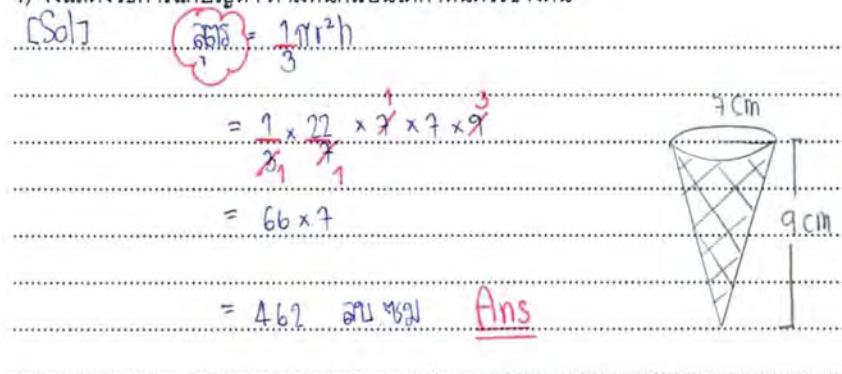 [Sol] สูตร = 1/3 πr²h
= 1/3 × 22/7 × 7 × 7 × 9
1 1 1 3
= 66 × 7
= 462 ลบ ซม Ans
7 cm
9 cm